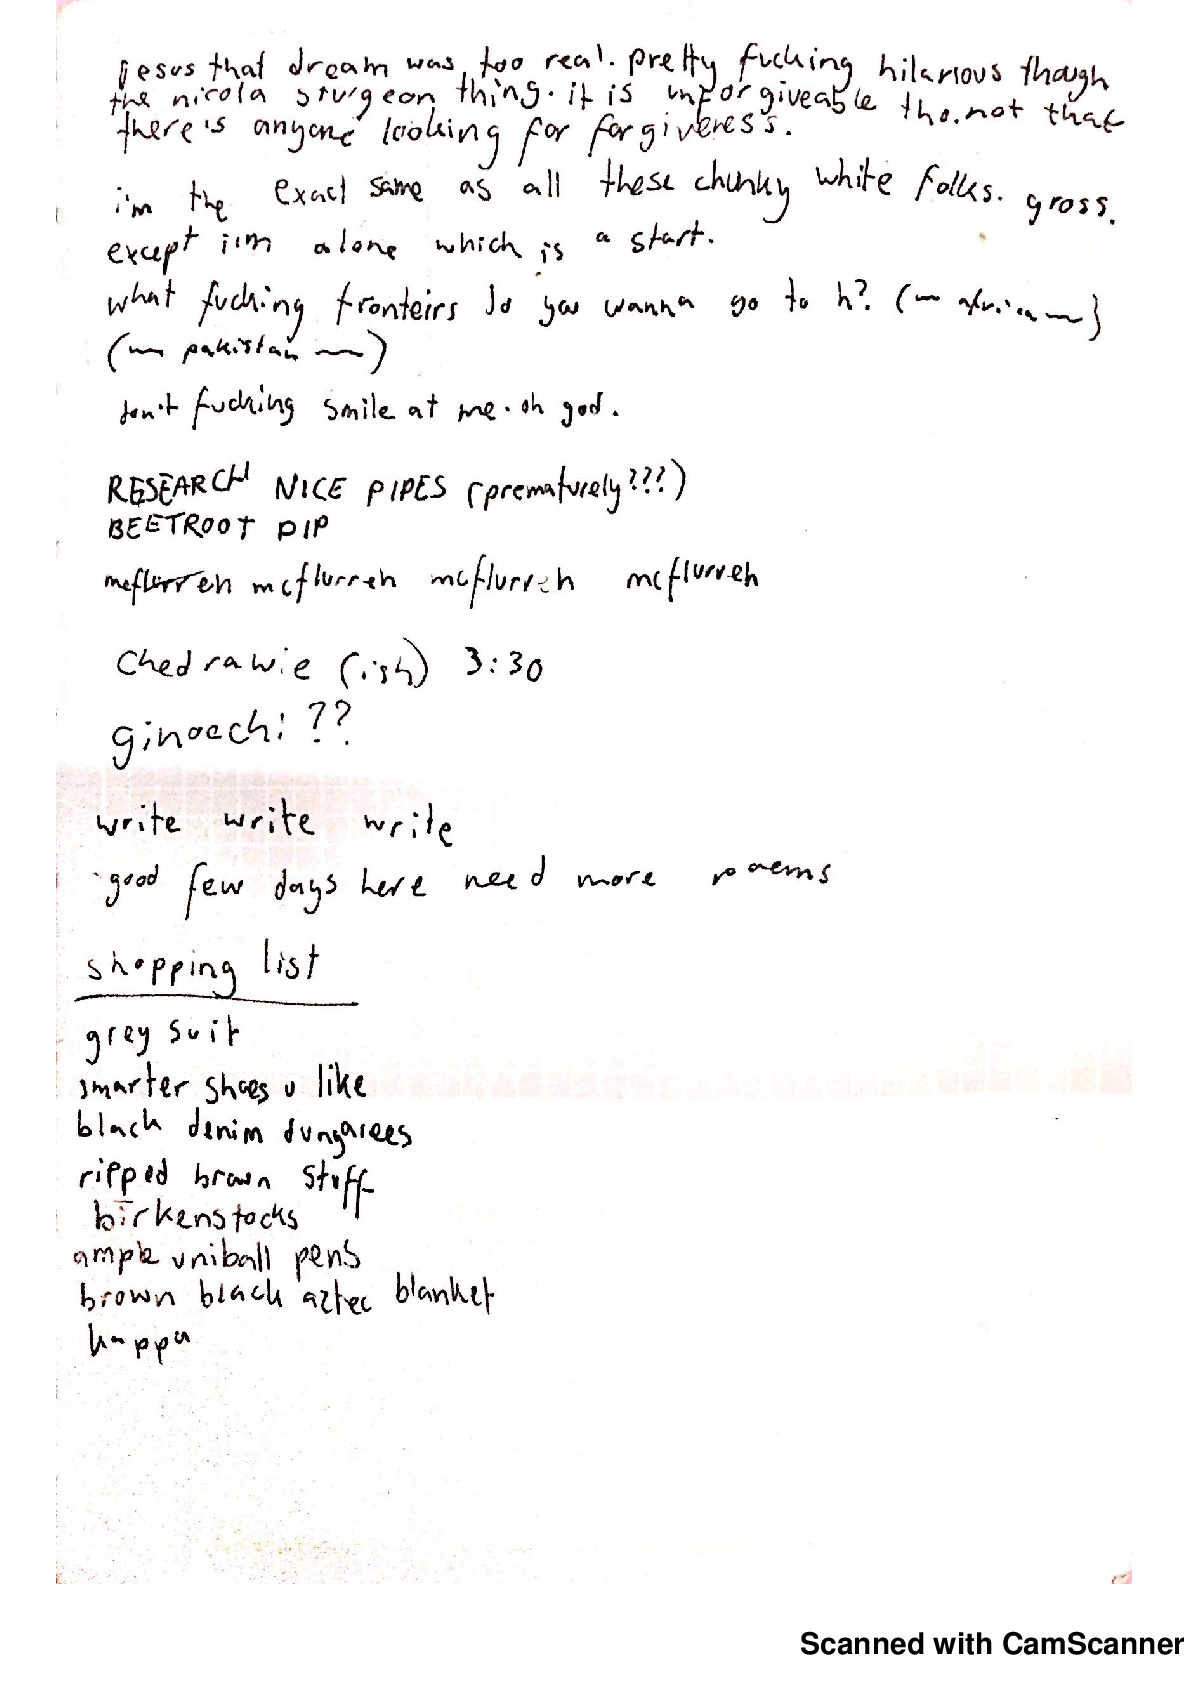 jesus that dream was too real. pretty fucking hilarious though
the nicola sturgeon thing. it is unforgiveable tho. not that
there's anyone looking for forgiveness.
i'm the exact same as all these chunky white folks. gross.
except i'm alone which is a start.
what fucking fronteirs do you wanna go to h? (~ africa ~)
(~ pakistan ~)
don't fucking smile at me. oh god.
RESEARCH NICE PIPES (prematurely???)
BEETROOT DIP
mcflurreh mcflurreh mcflurreh mcflurreh
Chedrawie (ish) 3:30
ginoechi ??
write write write
good few days here need more poems
shopping list
grey suit
smarter shoes u like
black denim dungarees
ripped brown stuff
birkenstocks
ample uniball pens
brown black aztec blanket
kappa
Scanned with CamScanner